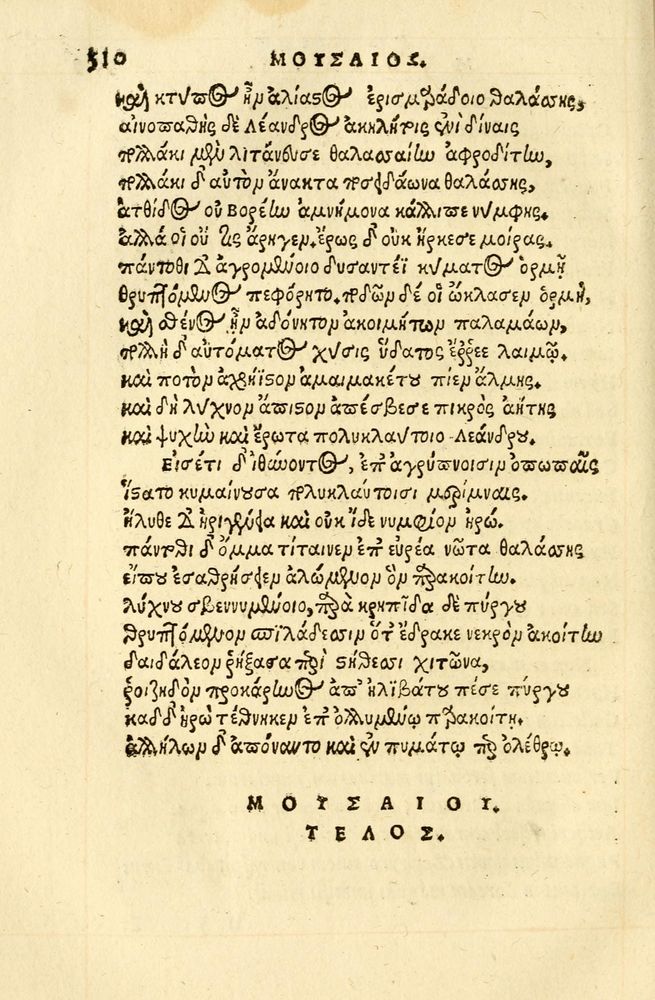 510 ΜΟΥΣΑΙΟΣ.
καὶ κτύπος ἦν ἁλίαστος ἐρισμαράγοιο θαλάσσης,
αἰνοπαθὴς δὲ Λέανδρος ἀκηλήτοις ἐνὶ δίναις
πολλάκι μὲν λιτάνευσε θαλασσαίην ἀφροδίτην,
πολλάκι δ' αὐτὸν ἄνακτα ποσειδάωνα θαλάσσης,
ἀτθίδος οὐ βορέην ἀμνήμονα κάλλιπε νύμφης.
ἀλλά οἱ οὔ τις ἄρηγεν. ἔρως δ' οὐκ ἤρκεσε μοίρας.
πάντοθι δ' ἀγρομένοιο δυσαντέϊ κύματος ὁρμῇ
θρυπτόμενος πεφόρητο. ποδῶν δέ οἱ ὤκλασεν ὁρμή,
καὶ σθένος ἦν ἀδόνητον ἀκοιμήτων παλαμάων,
πολλὴ δ' αὐτόματος χύσις ὕδατος ἔῤῥεε λαιμῷ.
καὶ ποτὸν ἀχρήϊστον ἀμαιμακέτου πίεν ἅλμης.
καὶ δὴ λύχνον ἄπιστον ἀπέσβεσε πικρὸς ἀήτης
καὶ ψυχὴν καὶ ἔρωτα πολυκλαύτοιο Λεάνδρου.
Εἰσέτι δ' ἰθύοντος, ἐπ' ἀγρύπνοισιν ὀπωπαῖς
ἵστατο κυμαίνουσα πολυκλαύτοισι μερίμναις.
ἤλυθε δ' ἠριγένεια καὶ οὐκ ἴδε νυμφίον ἡρώ.
πάντοθι δ' ὄμμα τίταινεν ἐπ' εὐρέα νῶτα θαλάσσης
εἴ που ἐσαθρήσειεν ἀλώμενον ὃν παρακοίτην.
λύχνου σβεννυμένοιο, παρὰ κρηπῖδα δὲ πύργου
θρυπτόμενον σπιλάδεσσιν ὅτ' ἔδρακε νεκρὸν ἀκοίτην
δαιδάλεον ῥήξασα περὶ στήθεσσι χιτῶνα,
ῥοιζηδὸν προκάρηνος ἀπ' ἠλιβάτου πέσε πύργου
καδδ' ἡρὼ τέθνηκεν ἐπ' ὀλλυμένῳ παρακοίτῃ.
ἀλλήλων δ' ἀπόναντο καὶ ἐν πυμάτῳ περ ὀλέθρῳ.
ΜΟΥΣΑΙΟΥ.
ΤΕΛΟΣ.